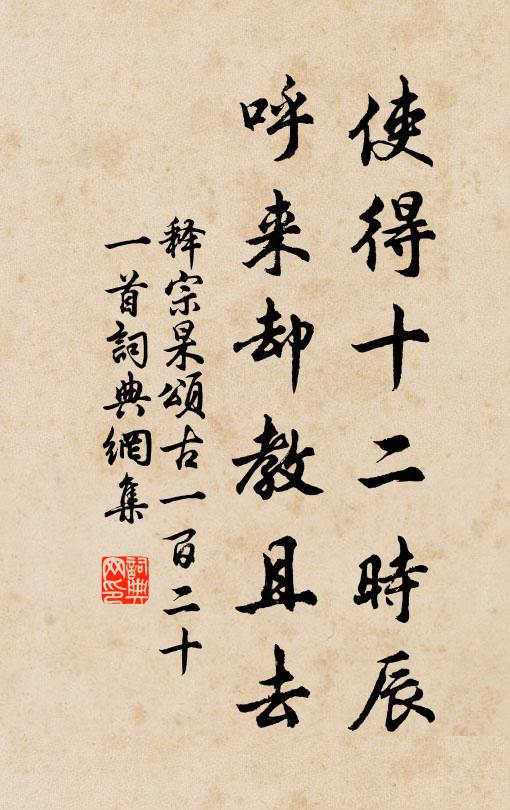 使得十二時辰
呼来却教且去
释宗杲頌古一百二十
一首詞典網集
詞典
网印